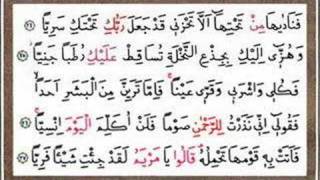 فَنَادٰيهَا مِنْ تَحْتِهَٓا اَلَّا تَحْزَنٖي قَدْ جَعَلَ رَبُّكِ تَحْتَكِ سَرِيًّا ﴿٢٤﴾
وَهُزّٖٓي اِلَيْكِ بِجِذْعِ النَّخْلَةِ تُسَاقِطْ عَلَيْكِ رُطَبًا جَنِيًّا ﴿٢٥﴾
فَكُلٖي وَاشْرَبٖي وَقَرّٖي عَيْنًاۚ فَاِمَّا تَرَيِنَّ مِنَ الْبَشَرِ اَحَدًاۙ
فَقُولٖٓي اِنّٖي نَذَرْتُ لِلرَّحْمٰنِ صَوْمًا فَلَنْ اُكَلِّمَ الْيَوْمَ اِنْسِيًّاۚ ﴿٢٦﴾
فَاَتَتْ بِهٖ قَوْمَهَا تَحْمِلُهُۜ قَالُوا يَا مَرْيَمُ لَقَدْ جِئْتِ شَيْـًٔا فَرِيًّا ﴿٢٧﴾